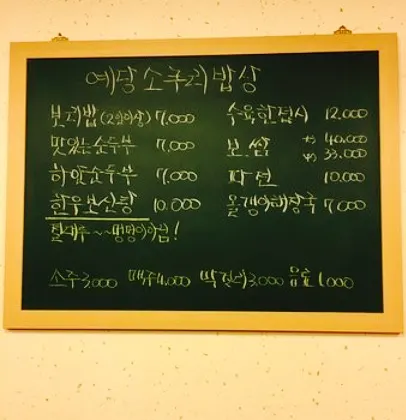 예당소쿠리밥상
보리밥(2인이상) 7,000
맛있는순두부 7,000
하얀순두부 7,000
한우보신탕 10.000
절대루~~멍멍이아님!
수육한접시 12,000
보쌈 大 40.000
中 33.000
파전 10.000
올갱이해장국 7000
소주3,000 맥주4.000 막걸리3.000 음료1.000